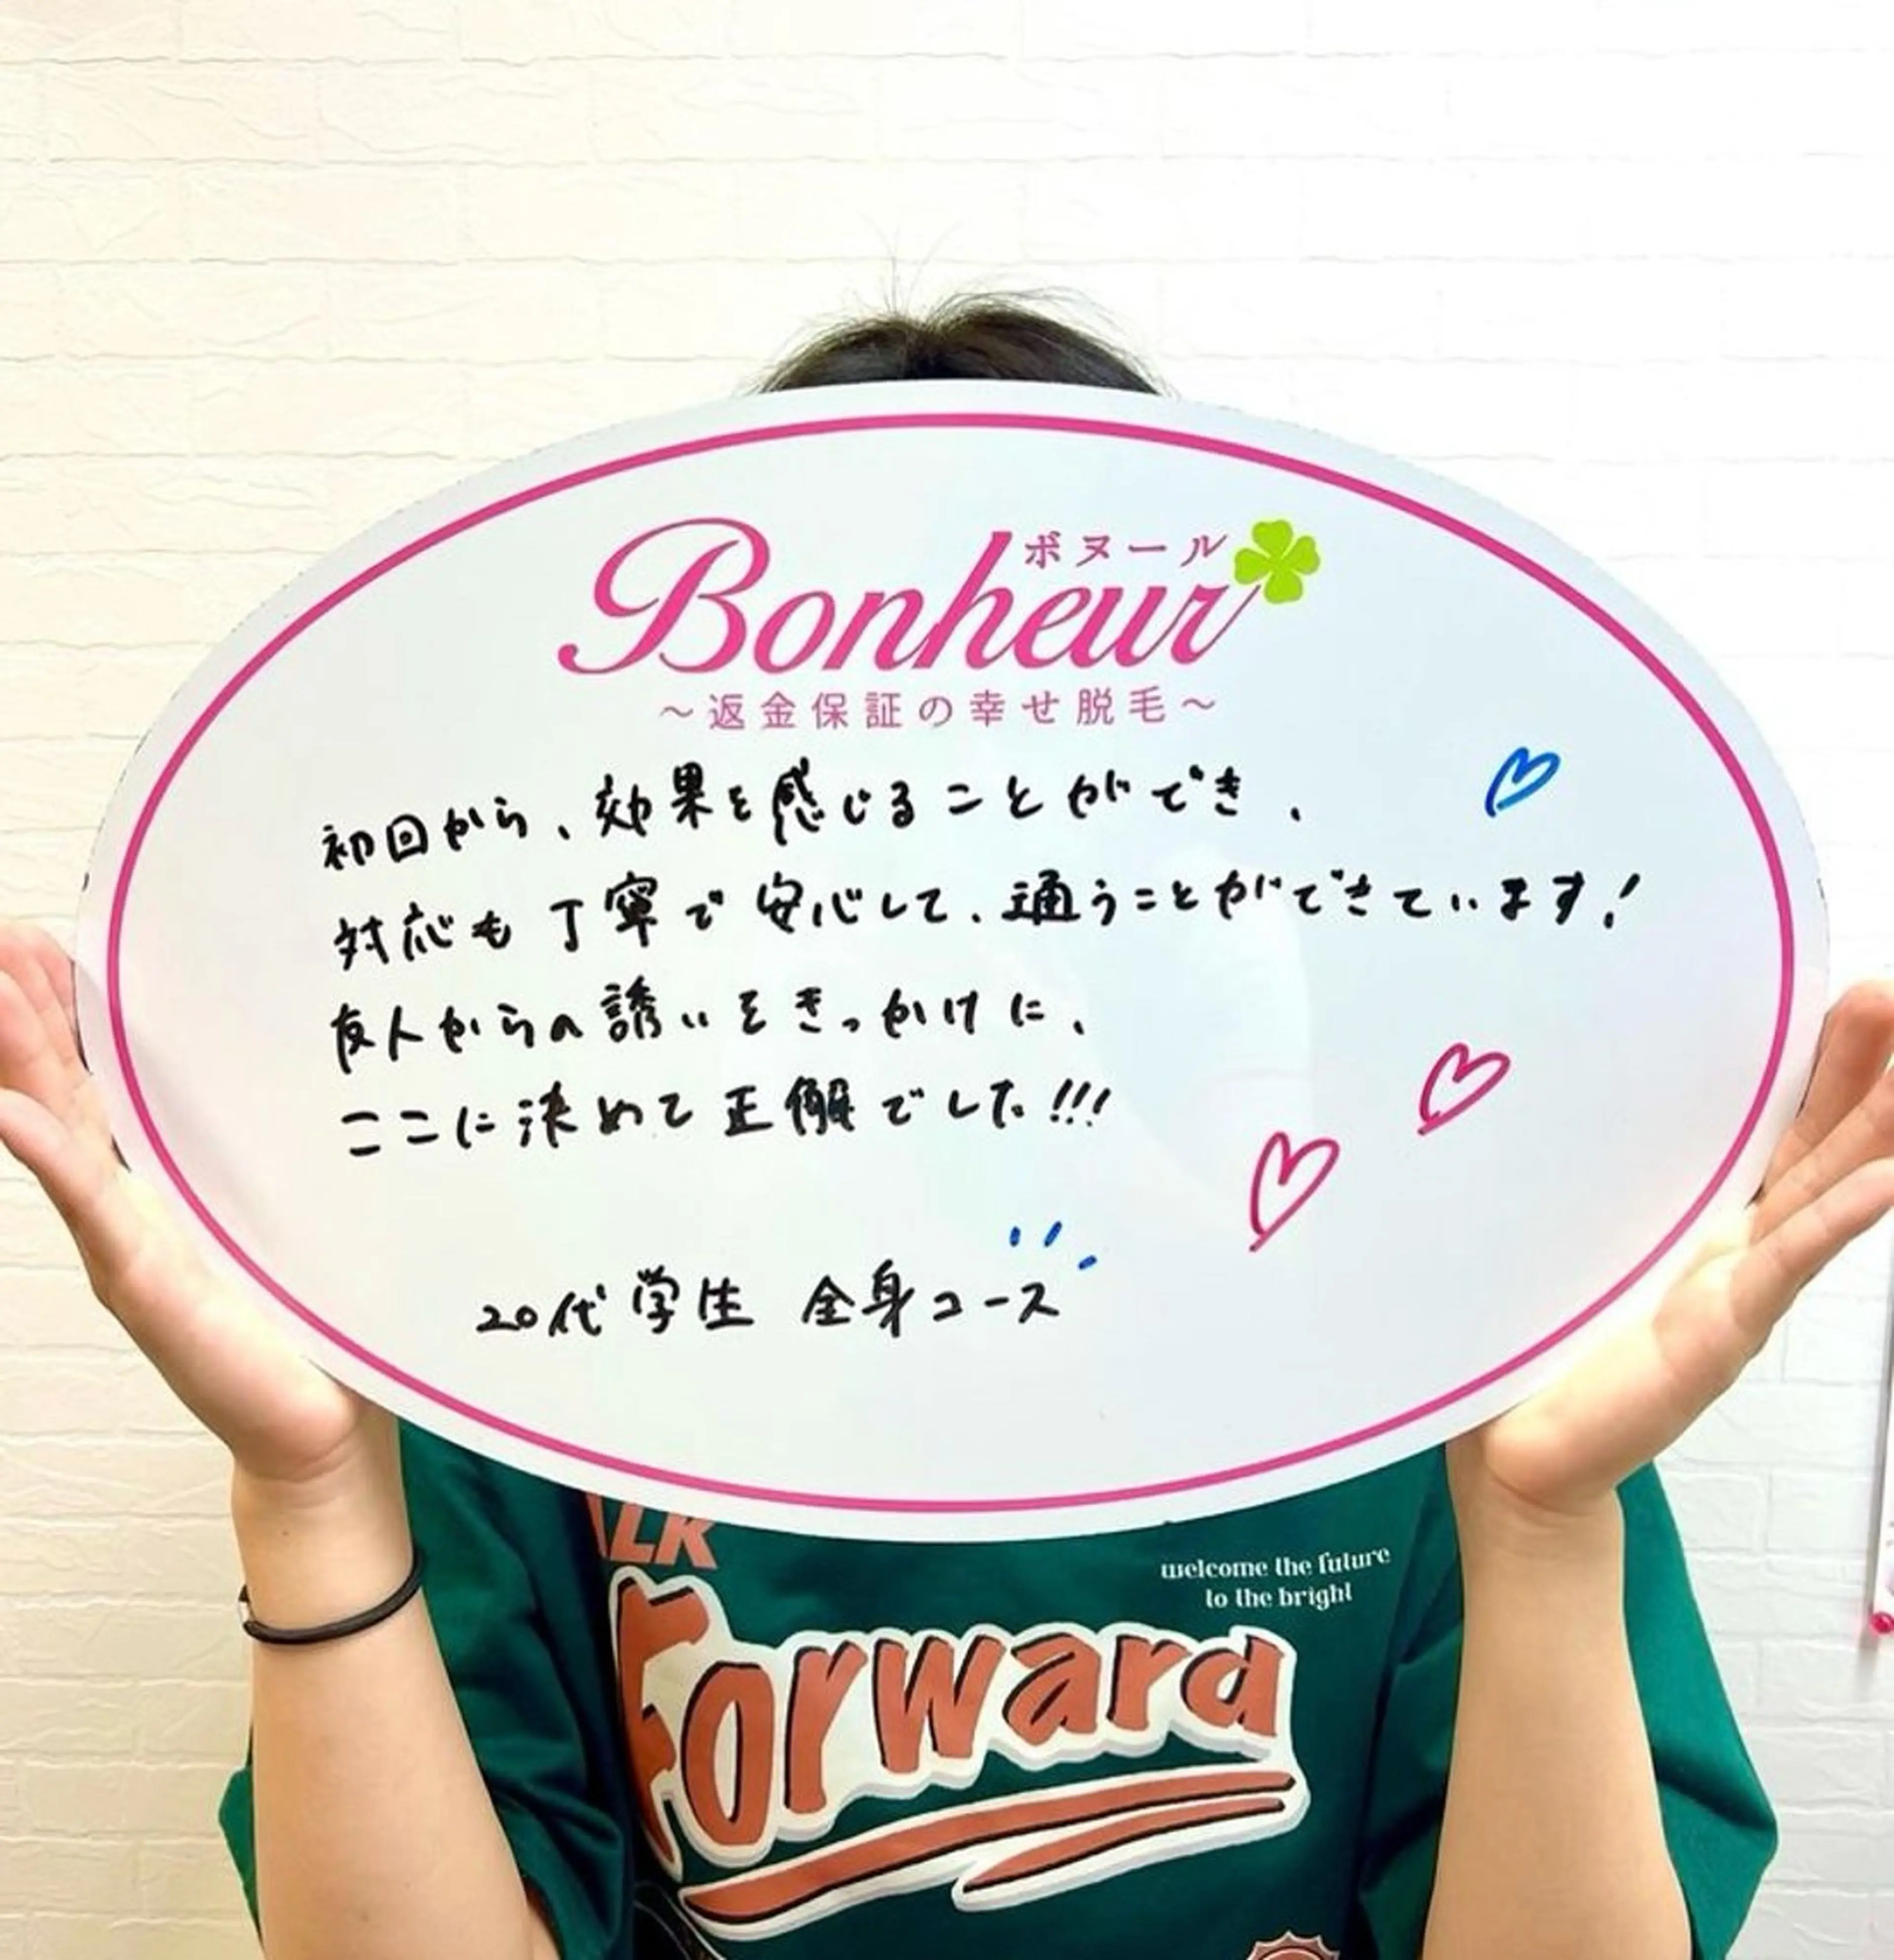 ボヌール
Bonheur
～返金保証の幸せ脱毛～
初回から、効果を感じることができ、
対応も丁寧で安心して、通うことができています!
友人からの誘いをきっかけに、
ここに決めて正解でした!!!
20代学生 全身コース
LK
welcome the future
to the bright
Forward